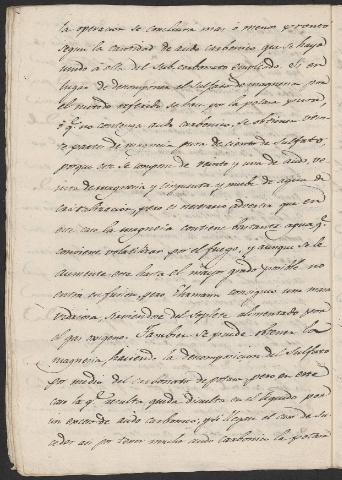 la operacion se concluira mas ó menos pronto
segun la cantidad de acido carbonico que se haya
unido á ella del subcarbonato empleado. Si en
lugar de descomponer el sulfato de magnesia por
el metodo referido se hace por la potasa pura
ó q.e no contenga acido carbonico, se obtienen vein
te partes de magnesia pura de ciento de sulfato,
porque este se compone de veinte y una de acido, ve
inte de magnesia y cincuenta y nueve de agua de
cristalizacion; pero es necesario advertir que en
este caso la magnesia contiene bastante agua q.e
conviene volatilizar por el fuego, y aunque se le
aumente este hasta el mayor grado posible no
entra en fusion, pero Ehrmann consiguio una masa
vidriosa, sirviendose del soplete alimentado por
el gas oxigeno. Tambien se puede obtener la
magnesia, haciendo la descomposicion del sulfato
por medio del carbonato de potasa, pero en este
caso la q.e resulta queda disuelta en el liquido por
un exceso de acido carbonico; y si llegase el caso de su
ceder asi por tener mucho acido carbonico la potasa